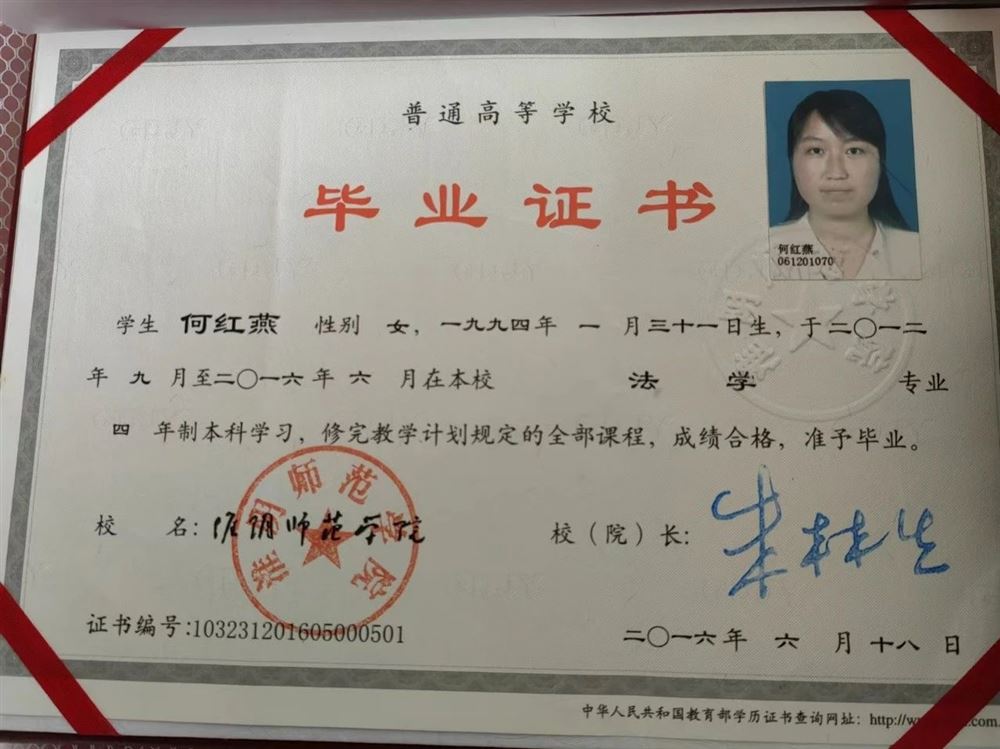 普通高等学校
毕业证书
何红燕
061201070
学生 何红燕 性别 女，一九九四年 一 月三十一日生，于二〇一二
年 九 月至二〇一六年 六 月在本校 法 学 专业
四 年制本科学习，修完教学计划规定的全部课程，成绩合格，准予毕业。
校 名：淮阴师范学院
淮阴师范学院
校（院）长：朱林生
证书编号：103231201605000501
二〇一六年 六 月 十八 日
中华人民共和国教育部学历证书查询网址：http://w
.com.